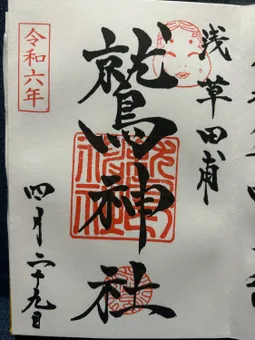 浅草田甫
鷲神社
令和六年
四月二十九日